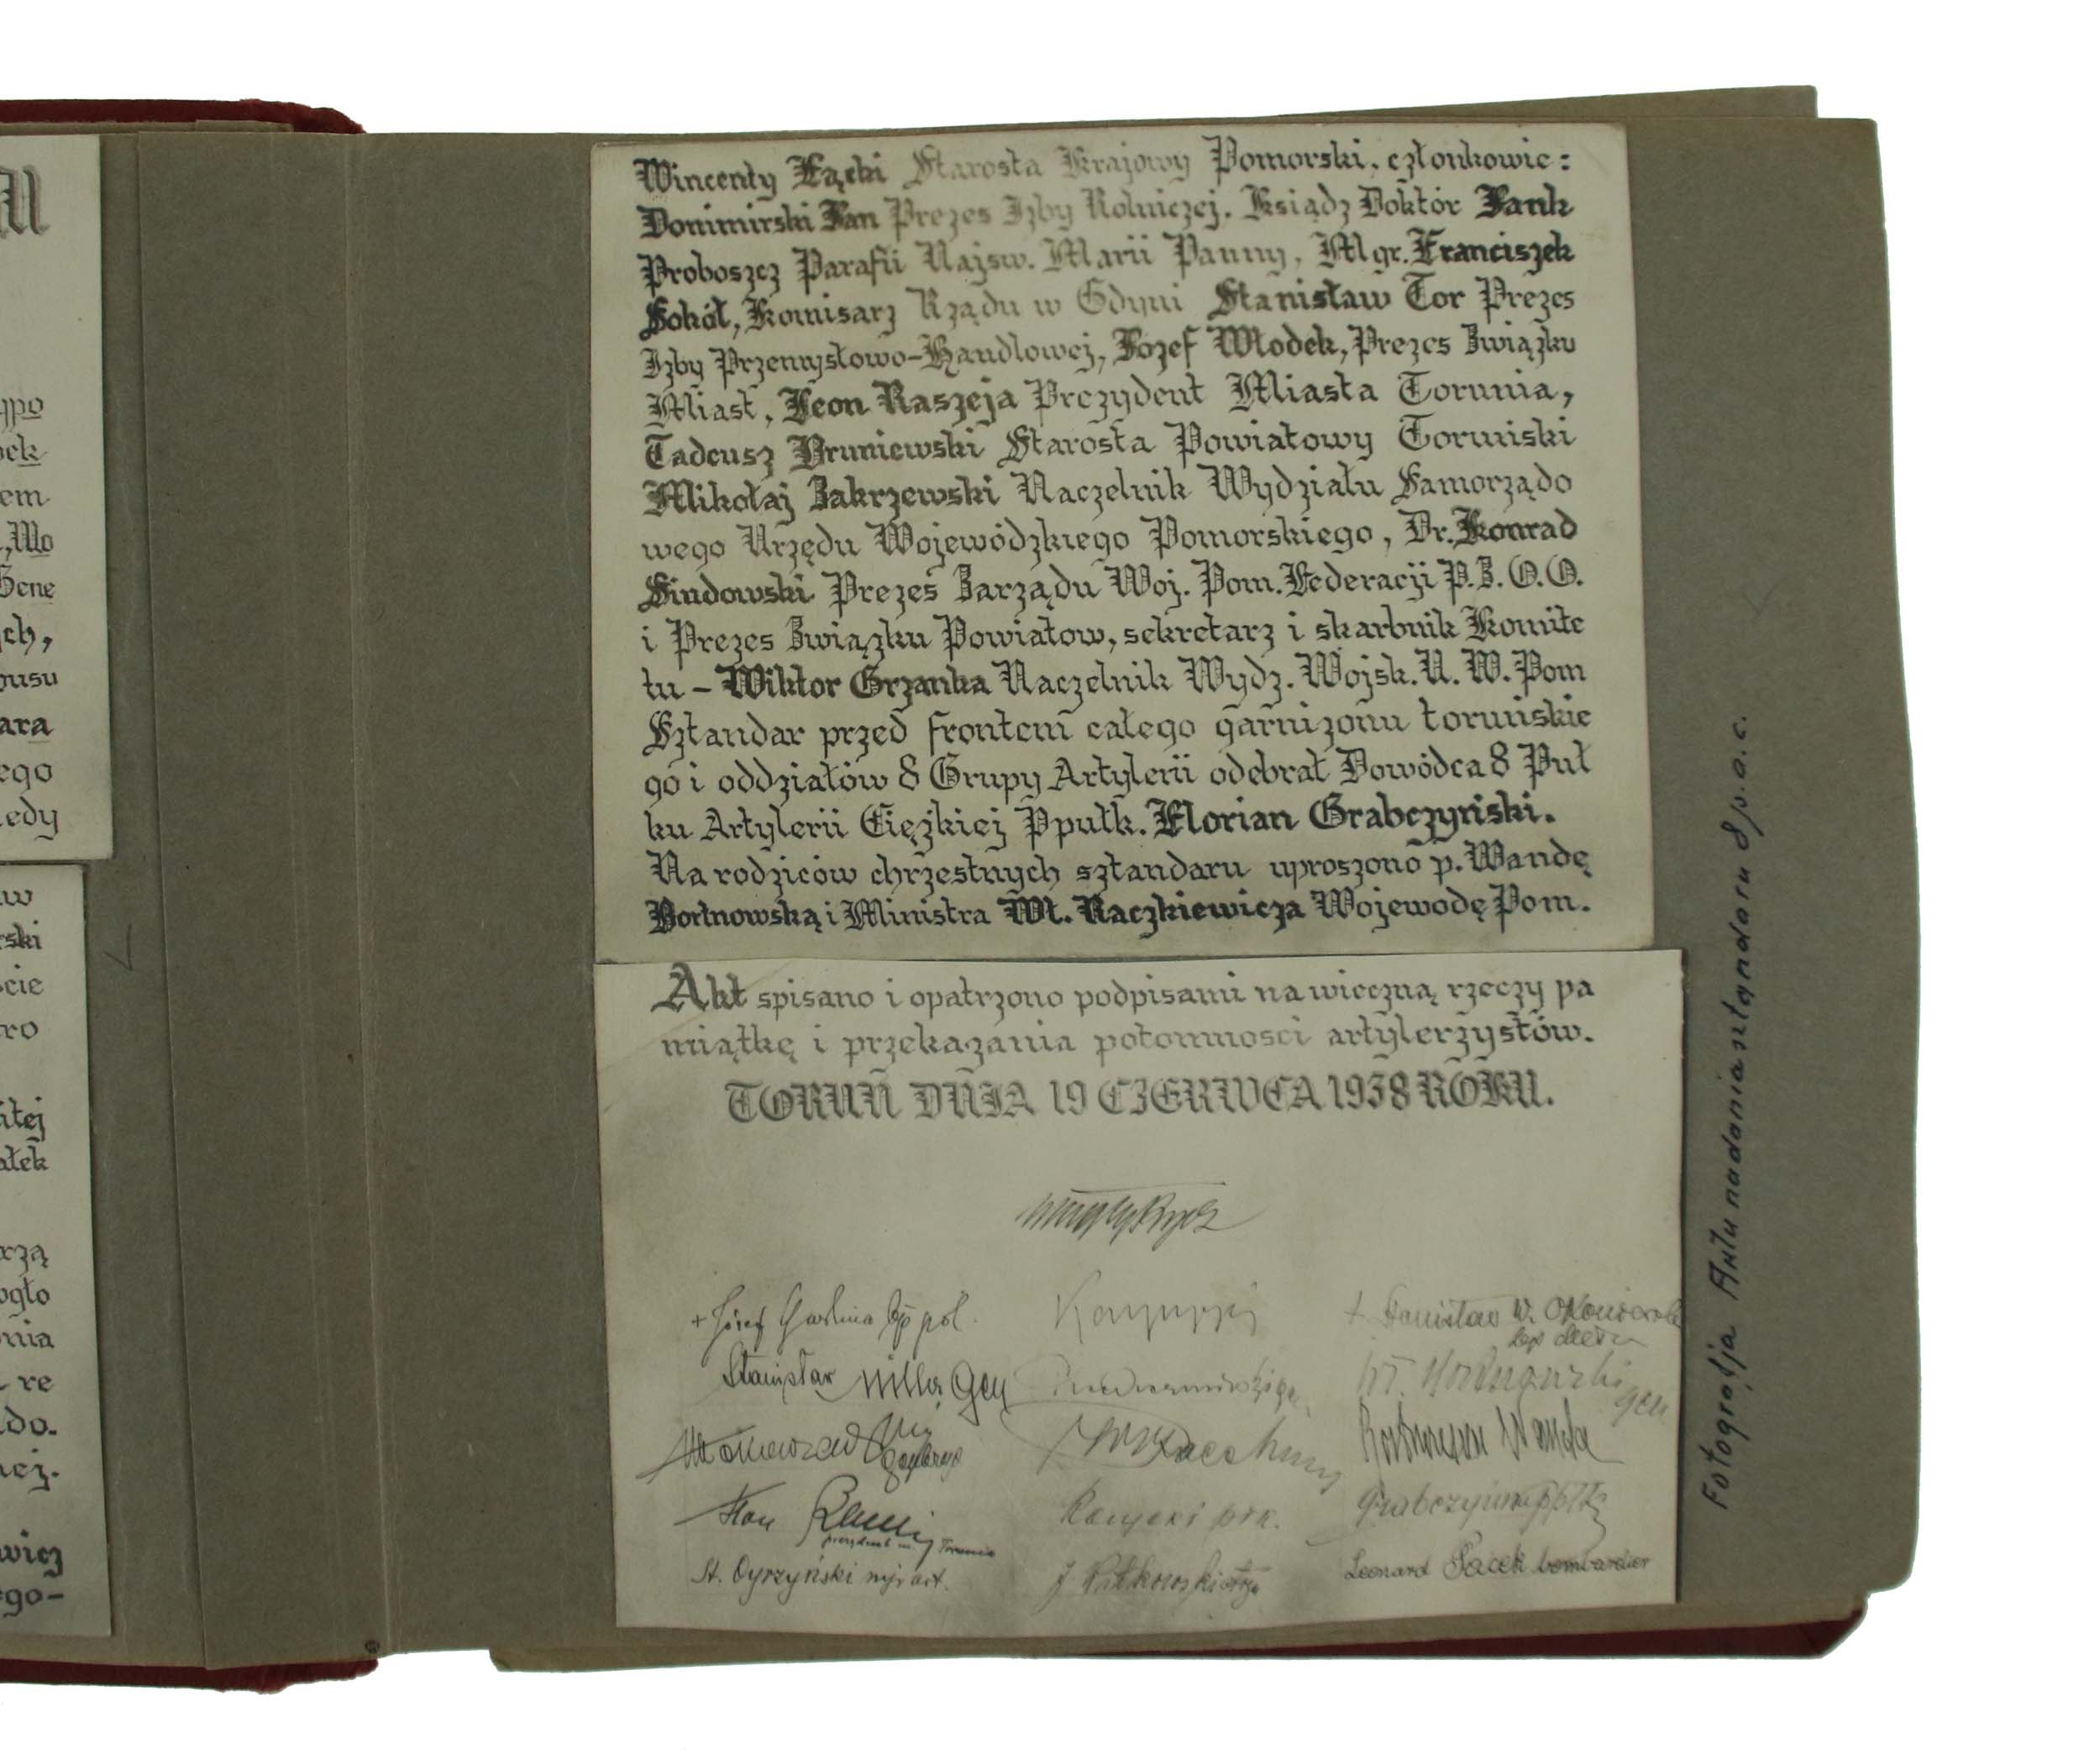 ypo
ek
em
, Wo
Gene
ych,
pusu
ara
ego
edy
w
rski
cie
ro
itej
ałek
rzą
ogło
nia
re
do.
nej.
wicz
ego-
Wincenty Łącki Starosta Krajowy Pomorski, członkowie:
Donimirski Jan Prezes Izby Rolniczej, Ksiądz Doktór Jank
Proboszcz Parafii Najsw. Marii Panny, Mgr. Franciszek
Sokół, Komisarz Rządu w Gdyni Stanisław Tor Prezes
Izby Przemysłowo-Handlowej, Józef Włodek, Prezes Związku
Miast, Leon Raszeja Prezydent Miasta Torunia,
Tadeusz Bruniewski Starosta Powiatowy Toruński
Mikołaj Zakrzewski Naczelnik Wydziału Samorządo
wego Urzędu Wojewódzkiego Pomorskiego, Dr. Konrad
Sindowski Prezes Zarządu Woj. Pom. Federacji P.Z.O.O.
i Prezes Związku Powiatow, sekretarz i skarbnik Komite
tu - Wiktor Grzanka Naczelnik Wydz. Wojsk. U. W. Pom
Sztandar przed frontem całego garnizonu toruńskie
go i oddziałów 8 Grupy Artylerii odebrał Dowódca 8 Puł
ku Artylerii Ciężkiej Ppułk. Florian Grabczyński.
Na rodziców chrzestnych sztandaru uproszono p. Wandę
Bortnowską i Ministra Wł. Raczkiewicza Wojewodę Pom.
Akt spisano i opatrzono podpisami na wieczną rzeczy pa
miątkę i przekazania potomnosci artylerzystów.
TORUŃ DNIA 19 CZERWCA 1938 ROKU.
Śmigły Rydz
+ Józef Gawlina Bp pol.
+ Stanisław W. Okoniewski
Stanisław Miller Gen
Wł. Bortnowski
gen
Bortnowska Wanda
Grabczyński ppłk
St. Cyrzyński mjr art.
Leonard Pacek bombardier
Fotografja Aktu nadania sztandaru 8 p.a.c.